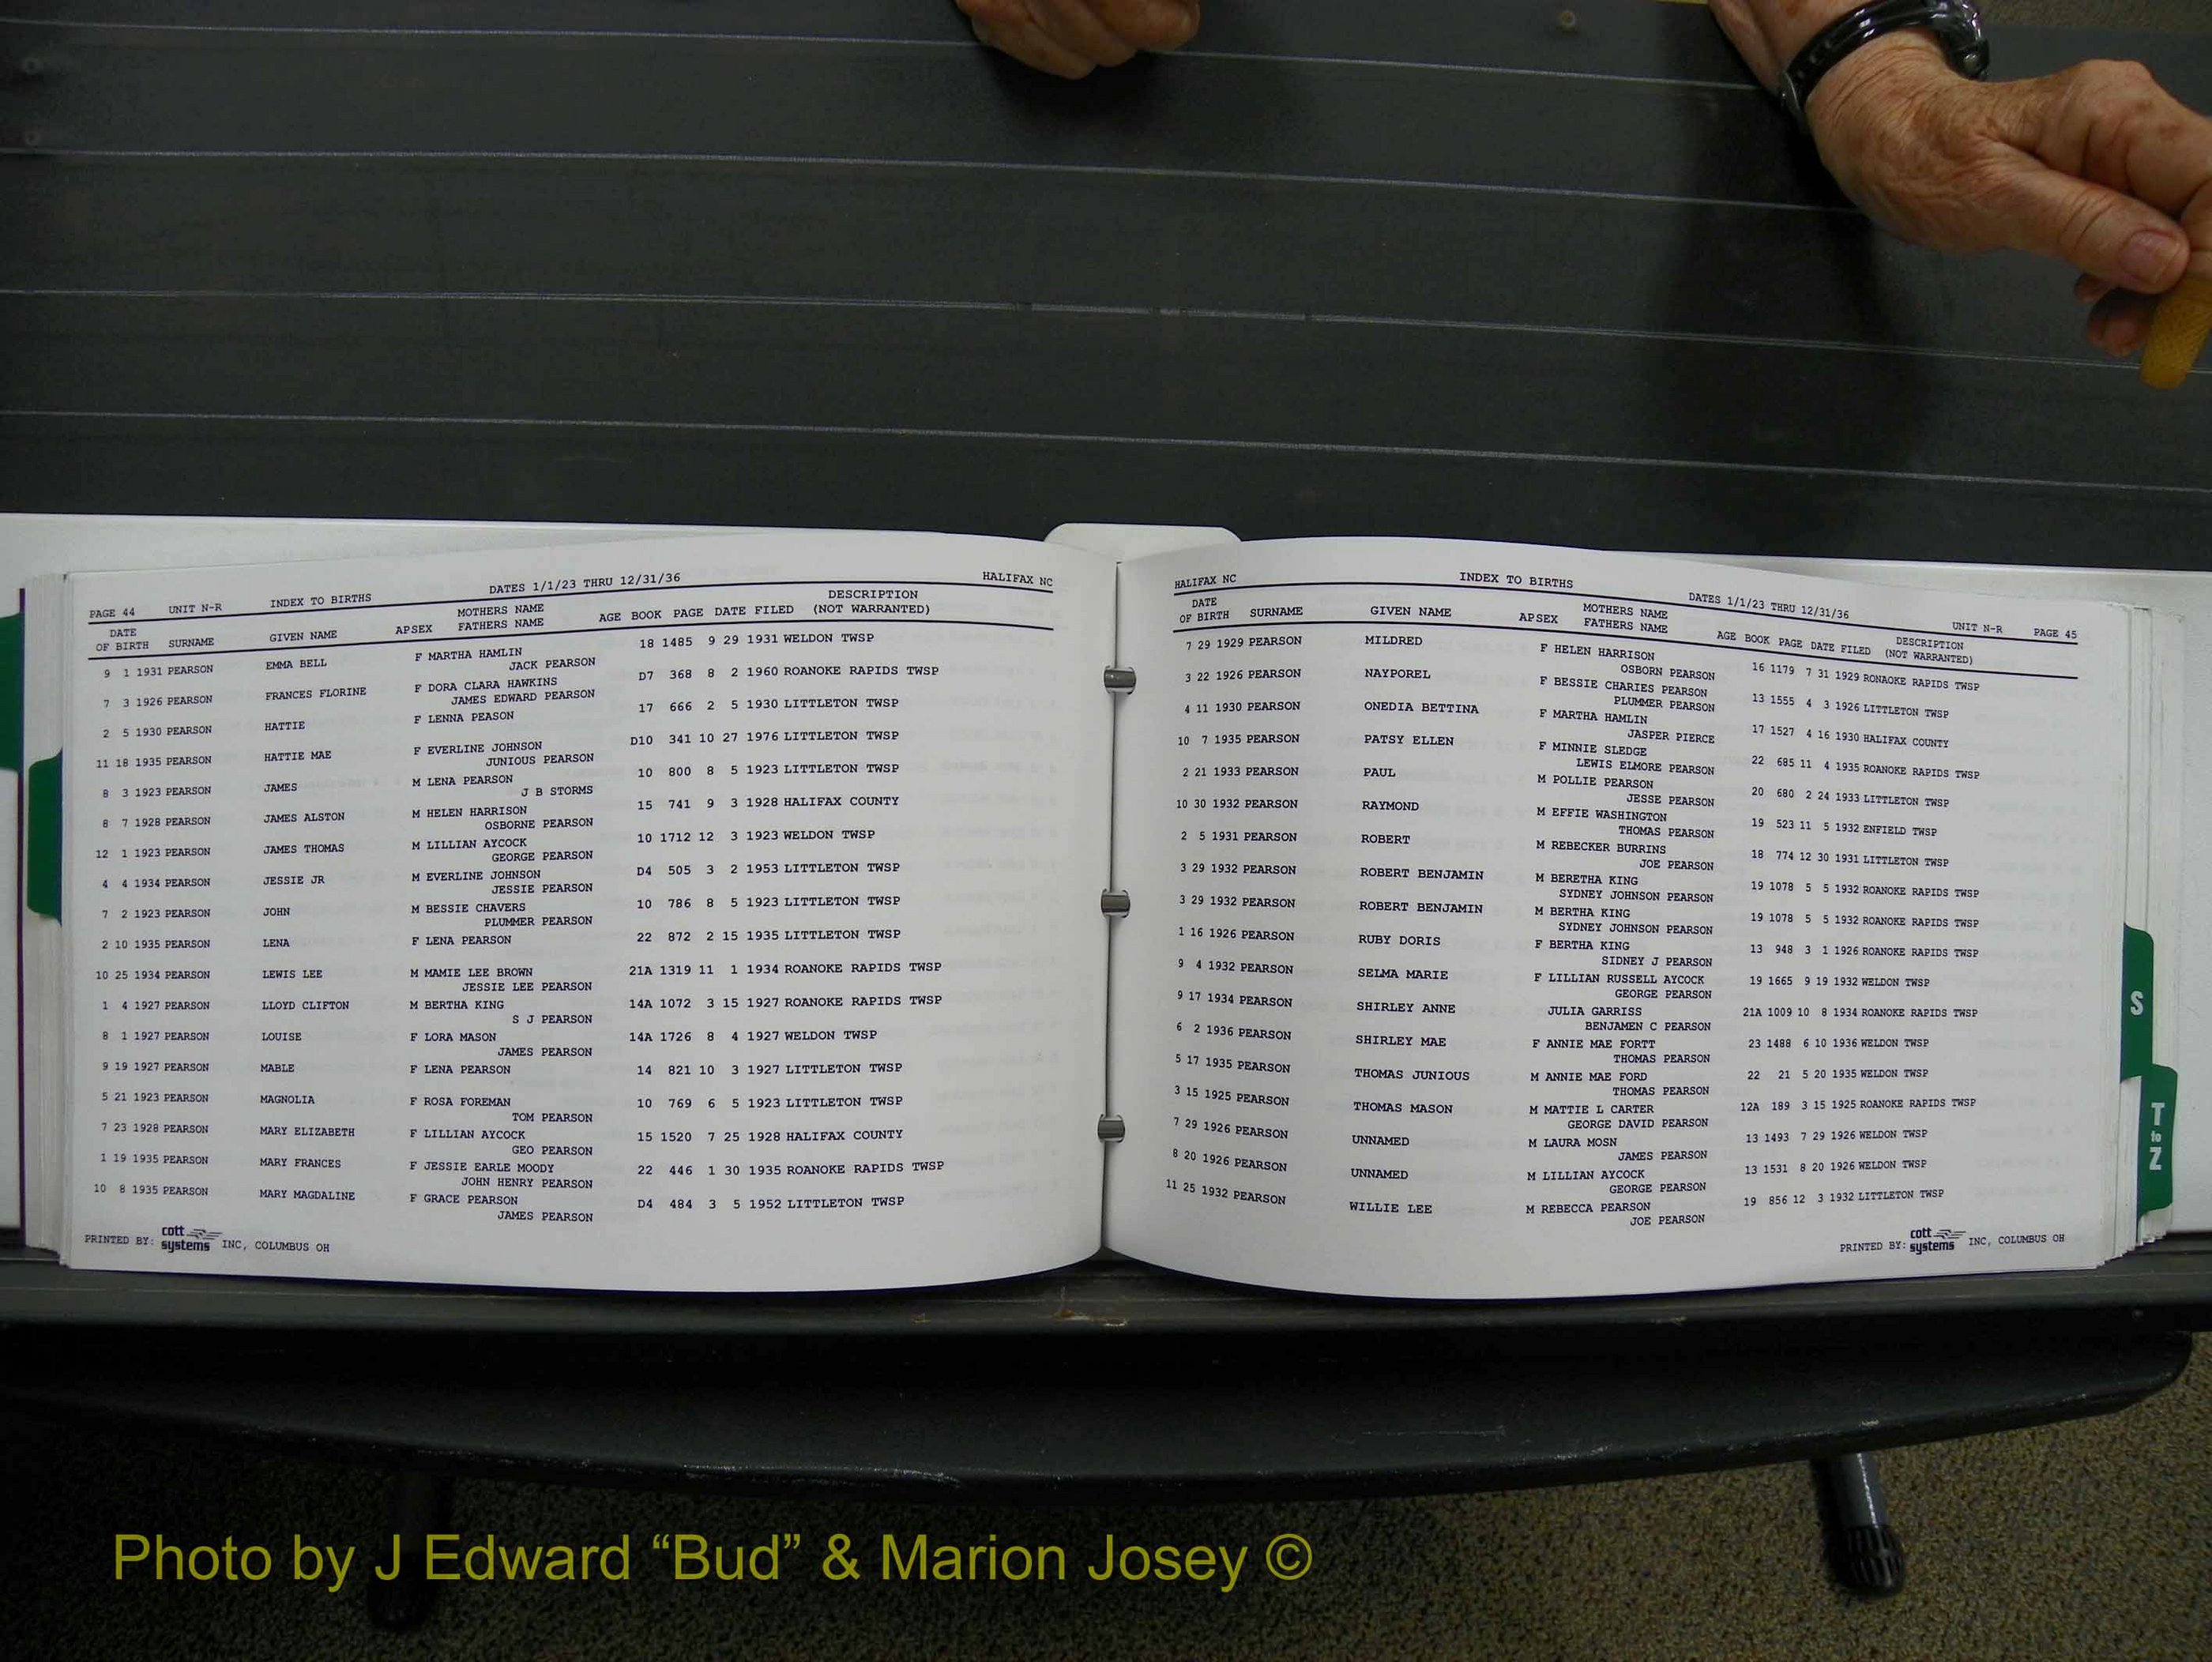 PAGE 44 UNIT N-R INDEX TO BIRTHS DATES 1/1/23 THRU 12/31/36 HALIFAX NC
DATE MOTHERS NAME DESCRIPTION
OF BIRTH SURNAME GIVEN NAME APSEX FATHERS NAME AGE BOOK PAGE DATE FILED (NOT WARRANTED)
9 1 1931 PEARSON EMMA BELL F MARTHA HAMLIN 18 1485 9 29 1931 WELDON TWSP
JACK PEARSON
7 3 1926 PEARSON FRANCES FLORINE F DORA CLARA HAWKINS D7 368 8 2 1960 ROANOKE RAPIDS TWSP
JAMES EDWARD PEARSON
2 5 1930 PEARSON HATTIE F LENNA PEASON 17 666 2 5 1930 LITTLETON TWSP
11 18 1935 PEARSON HATTIE MAE F EVERLINE JOHNSON D10 341 10 27 1976 LITTLETON TWSP
JUNIOUS PEARSON
8 3 1923 PEARSON JAMES M LENA PEARSON 10 800 8 5 1923 LITTLETON TWSP
J B STORMS
8 7 1928 PEARSON JAMES ALSTON M HELEN HARRISON 15 741 9 3 1928 HALIFAX COUNTY
OSBORNE PEARSON
12 1 1923 PEARSON JAMES THOMAS M LILLIAN AYCOCK 10 1712 12 3 1923 WELDON TWSP
GEORGE PEARSON
4 4 1934 PEARSON JESSIE JR M EVERLINE JOHNSON D4 505 3 2 1953 LITTLETON TWSP
JESSIE PEARSON
7 2 1923 PEARSON JOHN M BESSIE CHAVERS 10 786 8 5 1923 LITTLETON TWSP
PLUMMER PEARSON
2 10 1935 PEARSON LENA F LENA PEARSON 22 872 2 15 1935 LITTLETON TWSP
10 25 1934 PEARSON LEWIS LEE M MAMIE LEE BROWN 21A 1319 11 1 1934 ROANOKE RAPIDS TWSP
JESSIE LEE PEARSON
1 4 1927 PEARSON LLOYD CLIFTON M BERTHA KING 14A 1072 3 15 1927 ROANOKE RAPIDS TWSP
S J PEARSON
8 1 1927 PEARSON LOUISE F LORA MASON 14A 1726 8 4 1927 WELDON TWSP
JAMES PEARSON
9 19 1927 PEARSON MABLE F LENA PEARSON 14 821 10 3 1927 LITTLETON TWSP
5 21 1923 PEARSON MAGNOLIA F ROSA FOREMAN 10 769 6 5 1923 LITTLETON TWSP
TOM PEARSON
7 23 1928 PEARSON MARY ELIZABETH F LILLIAN AYCOCK 15 1520 7 25 1928 HALIFAX COUNTY
GEO PEARSON
1 19 1935 PEARSON MARY FRANCES F JESSIE EARLE MOODY 22 446 1 30 1935 ROANOKE RAPIDS TWSP
JOHN HENRY PEARSON
10 8 1935 PEARSON MARY MAGDALINE F GRACE PEARSON D4 484 3 5 1952 LITTLETON TWSP
JAMES PEARSON
PRINTED BY: cott systems INC, COLUMBUS OH
HALIFAX NC INDEX TO BIRTHS DATES 1/1/23 THRU 12/31/36 UNIT N-R PAGE 45
DATE MOTHERS NAME DESCRIPTION
OF BIRTH SURNAME GIVEN NAME APSEX FATHERS NAME AGE BOOK PAGE DATE FILED (NOT WARRANTED)
7 29 1929 PEARSON MILDRED F HELEN HARRISON 16 1179 7 31 1929 RONAOKE RAPIDS TWSP
OSBORN PEARSON
3 22 1926 PEARSON NAYPOREL F BESSIE CHARIES PEARSON 13 1555 4 3 1926 LITTLETON TWSP
PLUMMER PEARSON
4 11 1930 PEARSON ONEDIA BETTINA F MARTHA HAMLIN 17 1527 4 16 1930 HALIFAX COUNTY
JASPER PIERCE
10 7 1935 PEARSON PATSY ELLEN F MINNIE SLEDGE 22 685 11 4 1935 ROANOKE RAPIDS TWSP
LEWIS ELMORE PEARSON
2 21 1933 PEARSON PAUL M POLLIE PEARSON 20 680 2 24 1933 LITTLETON TWSP
JESSE PEARSON
10 30 1932 PEARSON RAYMOND M EFFIE WASHINGTON 19 523 11 5 1932 ENFIELD TWSP
THOMAS PEARSON
2 5 1931 PEARSON ROBERT M REBECKER BURRINS 18 774 12 30 1931 LITTLETON TWSP
JOE PEARSON
3 29 1932 PEARSON ROBERT BENJAMIN M BERETHA KING 19 1078 5 5 1932 ROANOKE RAPIDS TWSP
SYDNEY JOHNSON PEARSON
3 29 1932 PEARSON ROBERT BENJAMIN M BERTHA KING 19 1078 5 5 1932 ROANOKE RAPIDS TWSP
SYDNEY JOHNSON PEARSON
1 16 1926 PEARSON RUBY DORIS F BERTHA KING 13 948 3 1 1926 ROANOKE RAPIDS TWSP
SIDNEY J PEARSON
9 4 1932 PEARSON SELMA MARIE F LILLIAN RUSSELL AYCOCK 19 1665 9 19 1932 WELDON TWSP
GEORGE PEARSON
9 17 1934 PEARSON SHIRLEY ANNE JULIA GARRISS 21A 1009 10 8 1934 ROANOKE RAPIDS TWSP
BENJAMEN C PEARSON
6 2 1936 PEARSON SHIRLEY MAE F ANNIE MAE FORTT 23 1488 6 10 1936 WELDON TWSP
THOMAS PEARSON
5 17 1935 PEARSON THOMAS JUNIOUS M ANNIE MAE FORD 22 21 5 20 1935 WELDON TWSP
THOMAS PEARSON
3 15 1925 PEARSON THOMAS MASON M MATTIE L CARTER 12A 189 3 15 1925 ROANOKE RAPIDS TWSP
GEORGE DAVID PEARSON
7 29 1926 PEARSON UNNAMED M LAURA MOSN 13 1493 7 29 1926 WELDON TWSP
JAMES PEARSON
8 20 1926 PEARSON UNNAMED M LILLIAN AYCOCK 13 1531 8 20 1926 WELDON TWSP
GEORGE PEARSON
11 25 1932 PEARSON WILLIE LEE M REBECCA PEARSON 19 856 12 3 1932 LITTLETON TWSP
JOE PEARSON
PRINTED BY: cott systems INC, COLUMBUS OH
S
T to Z
Photo by J Edward “Bud” & Marion Josey ©